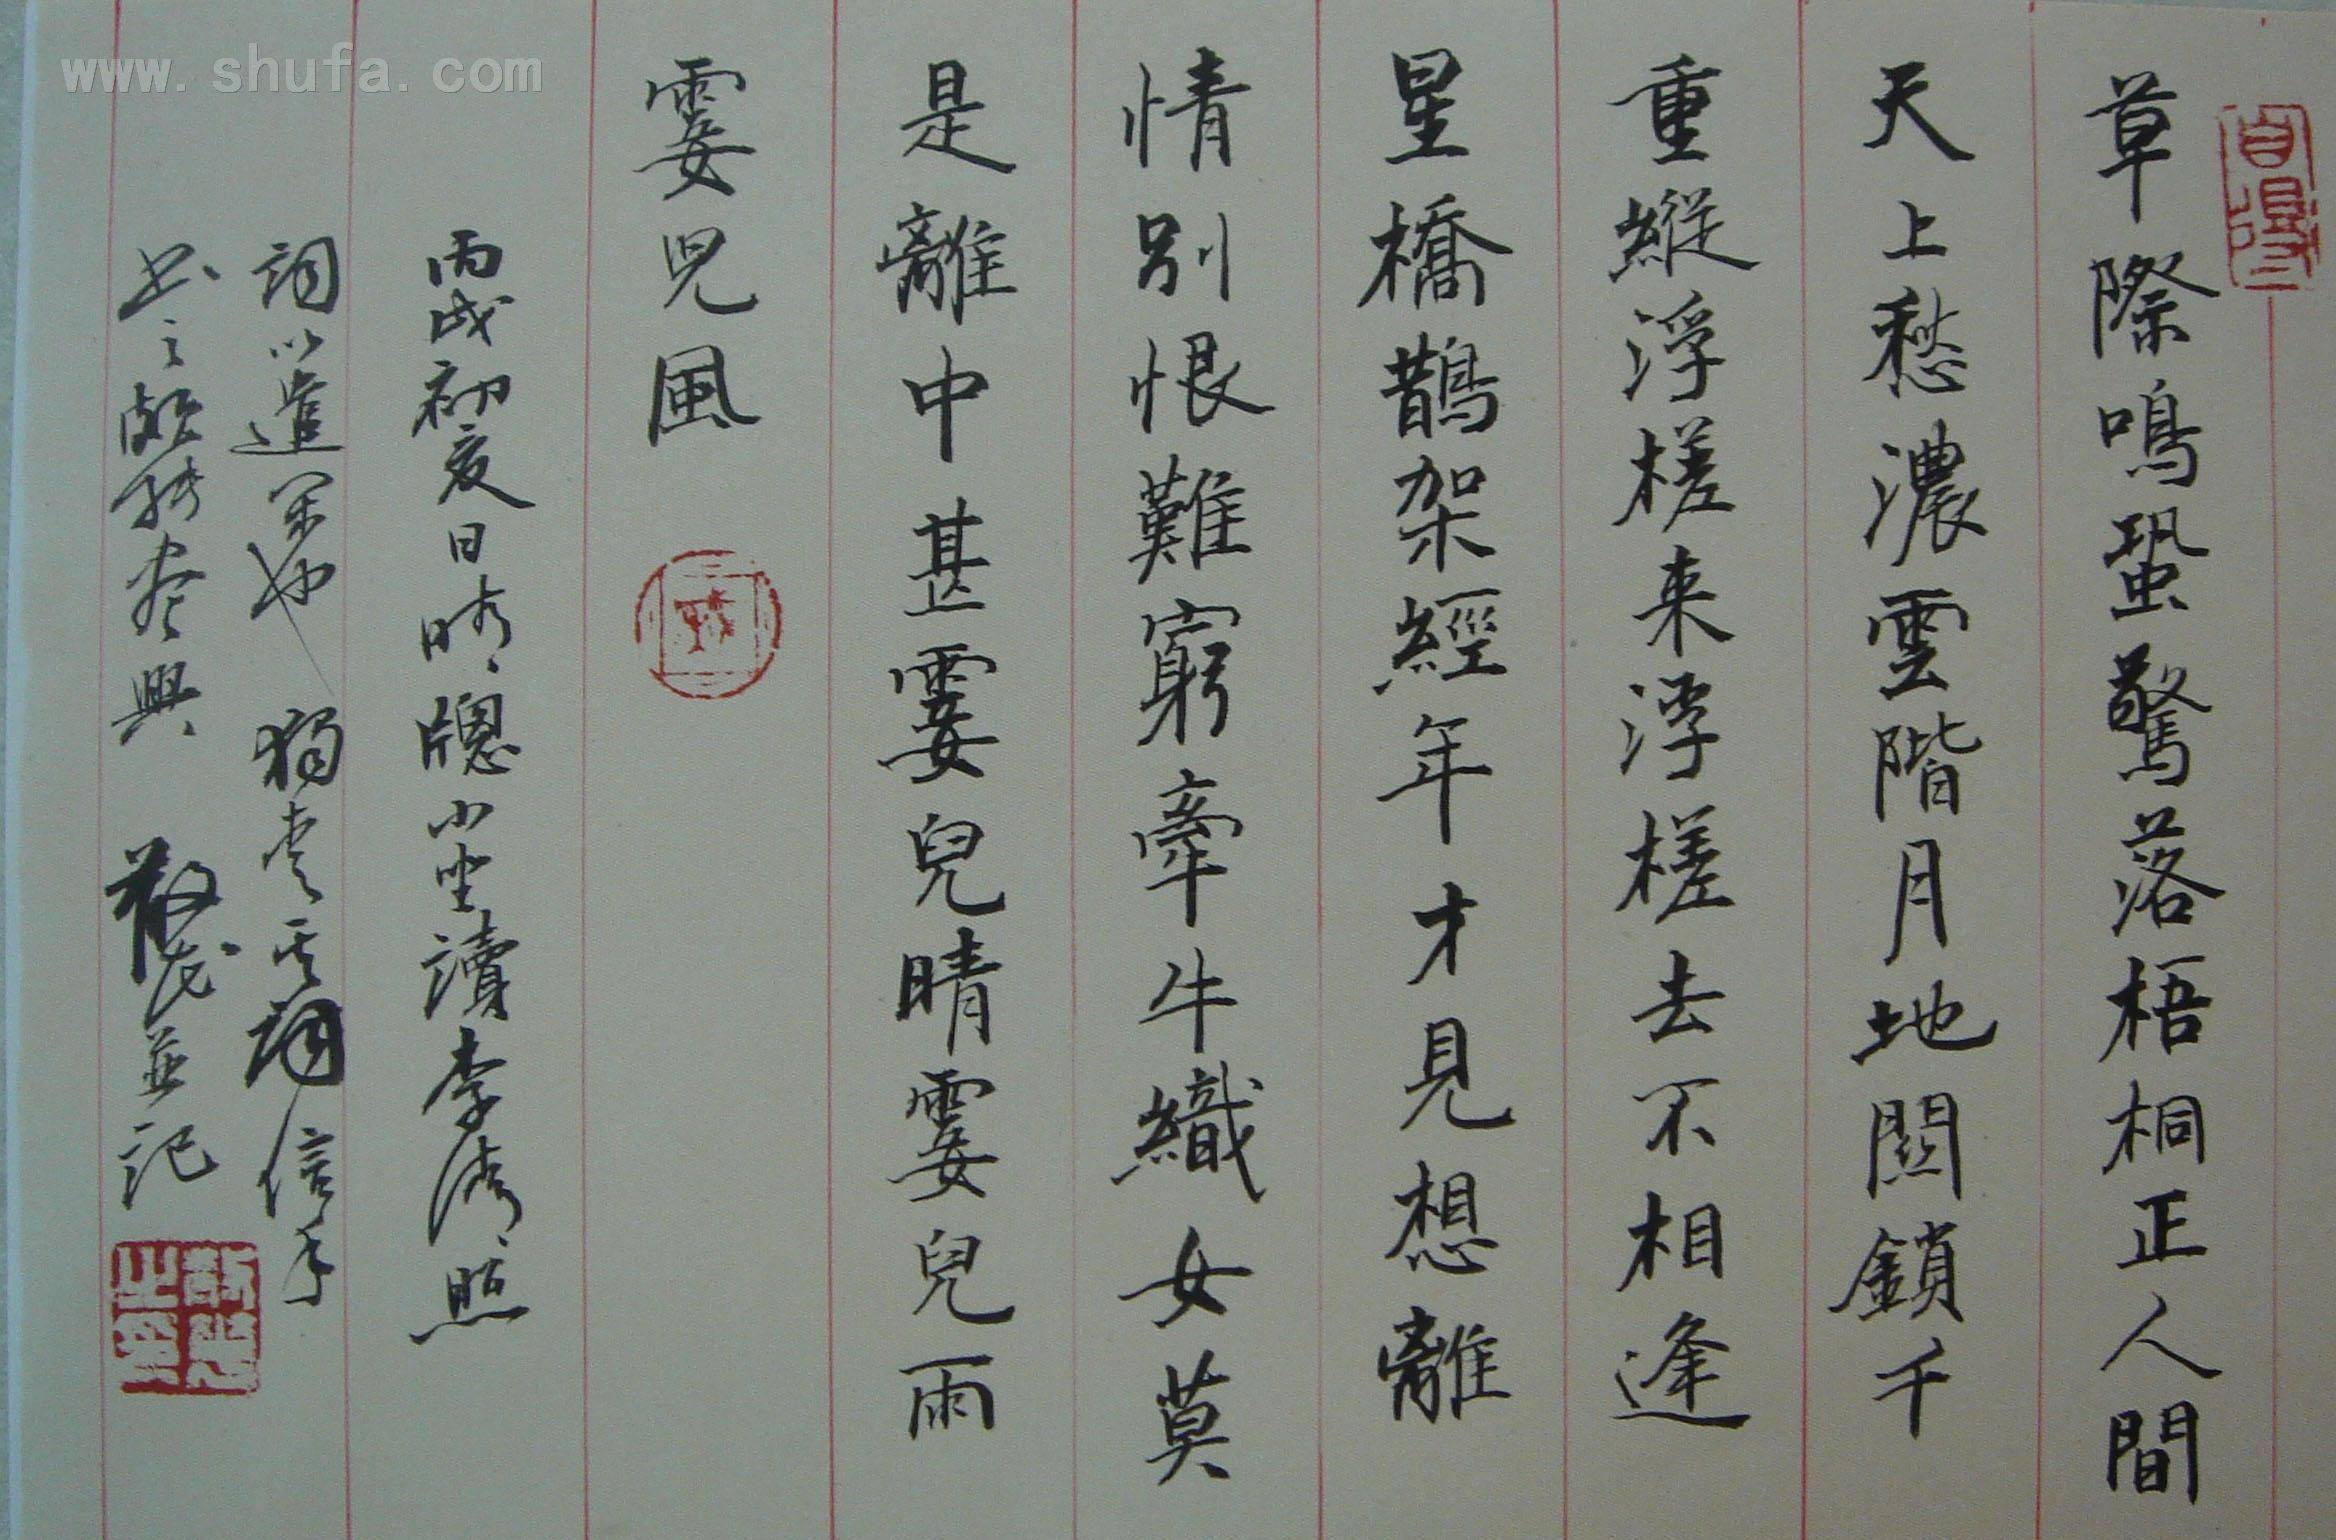 草際鳴蛩驚落梧桐正人間
天上愁濃雲階月地關鎖千
重縱浮槎来浮槎去不相逢
星橋鵲架經年才見想離
情别恨難窮牽牛織女莫
是離中甚霎兒晴霎兒雨
霎兒風
丙戌初夏日晴窻小坐讀李清照
詞以遣興也獨愛其詞信手
書之頗能盡興 並記
www.shufa.com